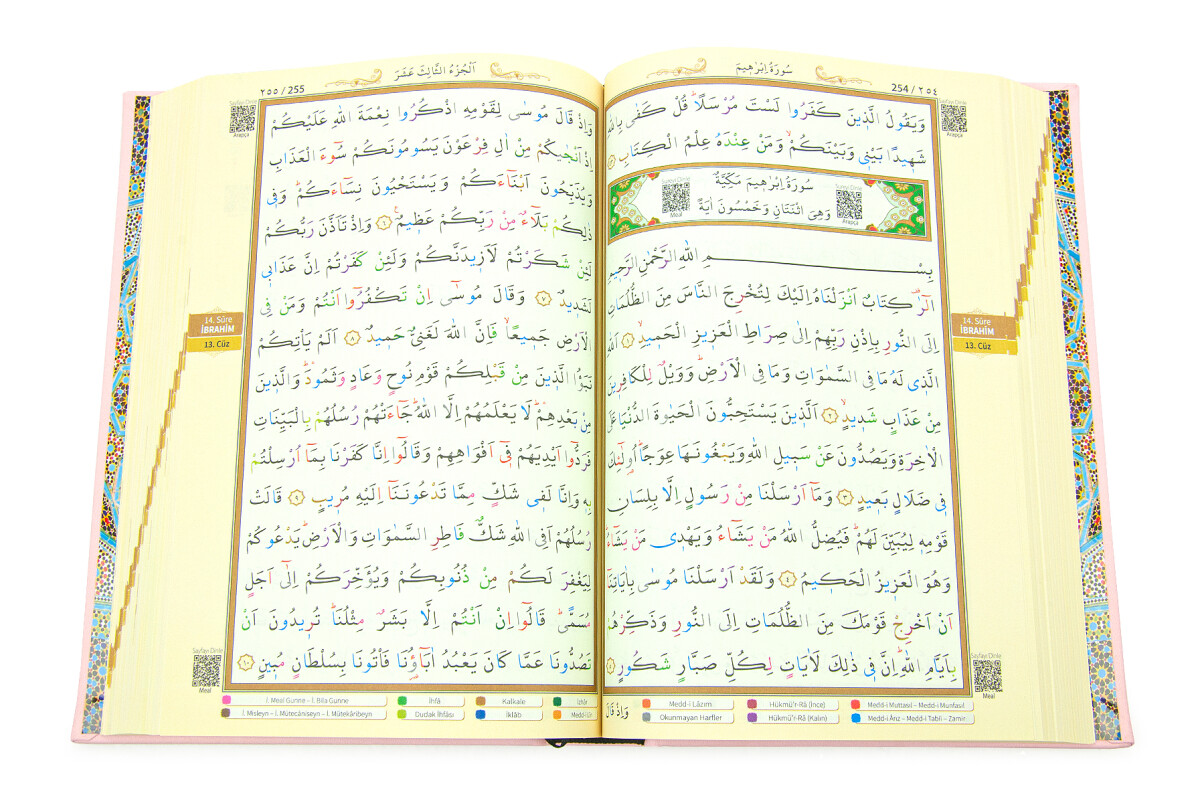 سُورَةُ اِبْرٰه۪يمَ
254 / ٢٥٤
Sayfayı Dinle
Arapça
وَيَقُولُ الَّذ۪ينَ كَفَرُوا لَسْتَ مُرْسَلًاۜ قُلْ كَفٰى بِاللّٰهِ
شَه۪يدًا بَيْن۪ي وَبَيْنَكُمْۙ وَمَنْ عِنْدَهُ عِلْمُ الْكِتَابِ
سُورَةُ اِبْرٰه۪يمَ مَكِّيَّةٌ
وَهِيَ اثْنَتَانِ وَخَمْسُونَ اٰيَةً
Meal
Arapça
بِسْمِ اللّٰهِ الرَّحْمٰنِ الرَّح۪يمِ
الٓرٰ۠ كِتَابٌ اَنْزَلْنَاهُ اِلَيْكَ لِتُخْرِجَ النَّاسَ مِنَ الظُّلُمَاتِ
اِلَى النُّورِ بِاِذْنِ رَبِّهِمْ اِلٰى صِرَاطِ الْعَز۪يزِ الْحَم۪يدِۙ ﴿١﴾ اَللّٰهِ
الَّذ۪ي لَهُ مَا فِي السَّمٰوَاتِ وَمَا فِي الْاَرْضِۜ وَوَيْلٌ لِلْكَافِر۪ينَ
مِنْ عَذَابٍ شَد۪يدٍۙ ﴿٢﴾ اَلَّذ۪ينَ يَسْتَحِبُّونَ الْحَيٰوةَ الدُّنْيَا عَلَى
الْاٰخِرَةِ وَيَصُدُّونَ عَنْ سَب۪يلِ اللّٰهِ وَيَبْغُونَهَا عِوَجًاۜ اُو۬لٰٓئِكَ
ف۪ي ضَلَالٍ بَع۪يدٍ ﴿٣﴾ وَمَٓا اَرْسَلْنَا مِنْ رَسُولٍ اِلَّا بِلِسَانِ
قَوْمِه۪ لِيُبَيِّنَ لَهُمْۜ فَيُضِلُّ اللّٰهُ مَنْ يَشَٓاءُ وَيَهْد۪ي مَنْ يَشَٓاءُۜ
وَهُوَ الْعَز۪يزُ الْحَك۪يمُ ﴿٤﴾ وَلَقَدْ اَرْسَلْنَا مُوسٰى بِاٰيَاتِنَٓا
اَنْ اَخْرِجْ قَوْمَكَ مِنَ الظُّلُمَاتِ اِلَى النُّورِ وَذَكِّرْهُمْ
بِاَيَّامِ اللّٰهِۜ اِنَّ ف۪ي ذٰلِكَ لَاٰيَاتٍ لِكُلِّ صَبَّارٍ شَكُورٍ ﴿٥﴾
وَاِذْ قَالَ
14. Sûre
İBRAHİM
13. Cüz
Sayfayı Dinle
Meal
Medd-i Lâzım
Hükmü'r-Râ (İnce)
Medd-i Muttasıl – Medd-i Munfasıl
Okunmayan Harfler
Hükmü'r-Râ (Kalın)
Medd-i Ârız – Medd-i Tabiî – Zamir
اَلْجُزْءُ الثَّالِثَ عَشَرَ
٢٥٥ / 255
Sayfayı Dinle
Arapça
وَاِذْ قَالَ مُوسٰى لِقَوْمِهِ اذْكُرُوا نِعْمَةَ اللّٰهِ عَلَيْكُمْ
اِذْ اَنْجٰيكُمْ مِنْ اٰلِ فِرْعَوْنَ يَسُومُونَكُمْ سُٓوءَ الْعَذَابِ
وَيُذَبِّحُونَ اَبْنَٓاءَكُمْ وَيَسْتَحْيُونَ نِسَٓاءَكُمْۜ وَف۪ي
ذٰلِكُمْ بَلَٓاءٌ مِنْ رَبِّكُمْ عَظ۪يمٌ۟ ﴿٦﴾ وَاِذْ تَاَذَّنَ رَبُّكُمْ
لَئِنْ شَكَرْتُمْ لَاَز۪يدَنَّكُمْ وَلَئِنْ كَفَرْتُمْ اِنَّ عَذَاب۪ي
لَشَد۪يدٌ ﴿٧﴾ وَقَالَ مُوسٰٓى اِنْ تَكْفُرُٓوا اَنْتُمْ وَمَنْ فِي
الْاَرْضِ جَم۪يعًاۙ فَاِنَّ اللّٰهَ لَغَنِيٌّ حَم۪يدٌ ﴿٨﴾ اَلَمْ يَأْتِكُمْ
نَبَؤُا الَّذ۪ينَ مِنْ قَبْلِكُمْ قَوْمِ نُوحٍ وَعَادٍ وَثَمُودَۜ وَالَّذ۪ينَ
مِنْ بَعْدِهِمْۜ لَا يَعْلَمُهُمْ اِلَّا اللّٰهُۜ جَٓاءَتْهُمْ رُسُلُهُمْ بِالْبَيِّنَاتِ
فَرَدُّٓوا اَيْدِيَهُمْ ف۪ٓي اَفْوَاهِهِمْ وَقَالُٓوا اِنَّا كَفَرْنَا بِمَٓا اُرْسِلْتُمْ
بِه۪ وَاِنَّا لَف۪ي شَكٍّ مِمَّا تَدْعُونَنَٓا اِلَيْهِ مُر۪يبٍ ﴿٩﴾ قَالَتْ
رُسُلُهُمْ اَفِي اللّٰهِ شَكٌّ فَاطِرِ السَّمٰوَاتِ وَالْاَرْضِۜ يَدْعُوكُمْ
لِيَغْفِرَ لَكُمْ مِنْ ذُنُوبِكُمْ وَيُؤَخِّرَكُمْ اِلٰٓى اَجَلٍ
مُسَمًّىۜ قَالُٓوا اِنْ اَنْتُمْ اِلَّا بَشَرٌ مِثْلُنَاۜ تُر۪يدُونَ اَنْ
تَصُدُّونَا عَمَّا كَانَ يَعْبُدُ اٰبَٓاؤُ۬نَا فَأْتُونَا بِسُلْطَانٍ مُب۪ينٍ ﴿١٠﴾
14. Sûre
İBRAHİM
13. Cüz
Sayfayı Dinle
Meal
İ. Meal Gunne – İ. Bila Gunne
İhfâ
Kalkale
İzhâr
İ. Misleyn – İ. Mütecâniseyn – İ. Mütekâribeyn
Dudak İhfâsı
İklâb